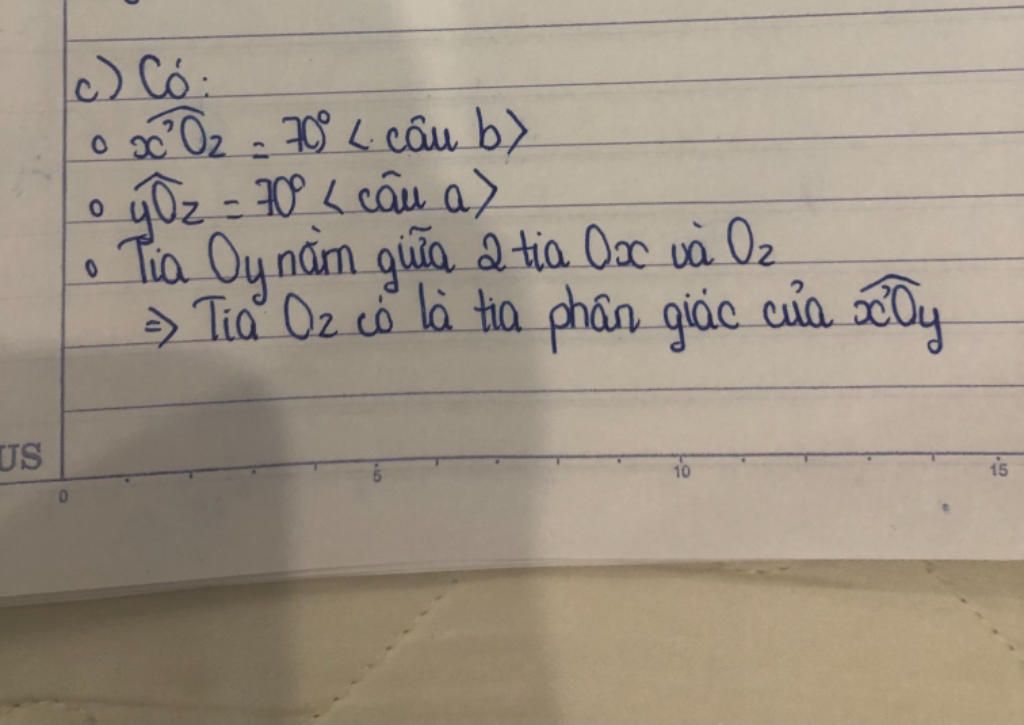 c) Có:
∘ x'Oz = 70° < câu b>
∘ yOz = 70° < câu a>
∘ Tia Oy nằm giữa 2 tia Ox và Oz
=> Tia Oz có là tia phân giác của x'Oy
US
0 5 10 15